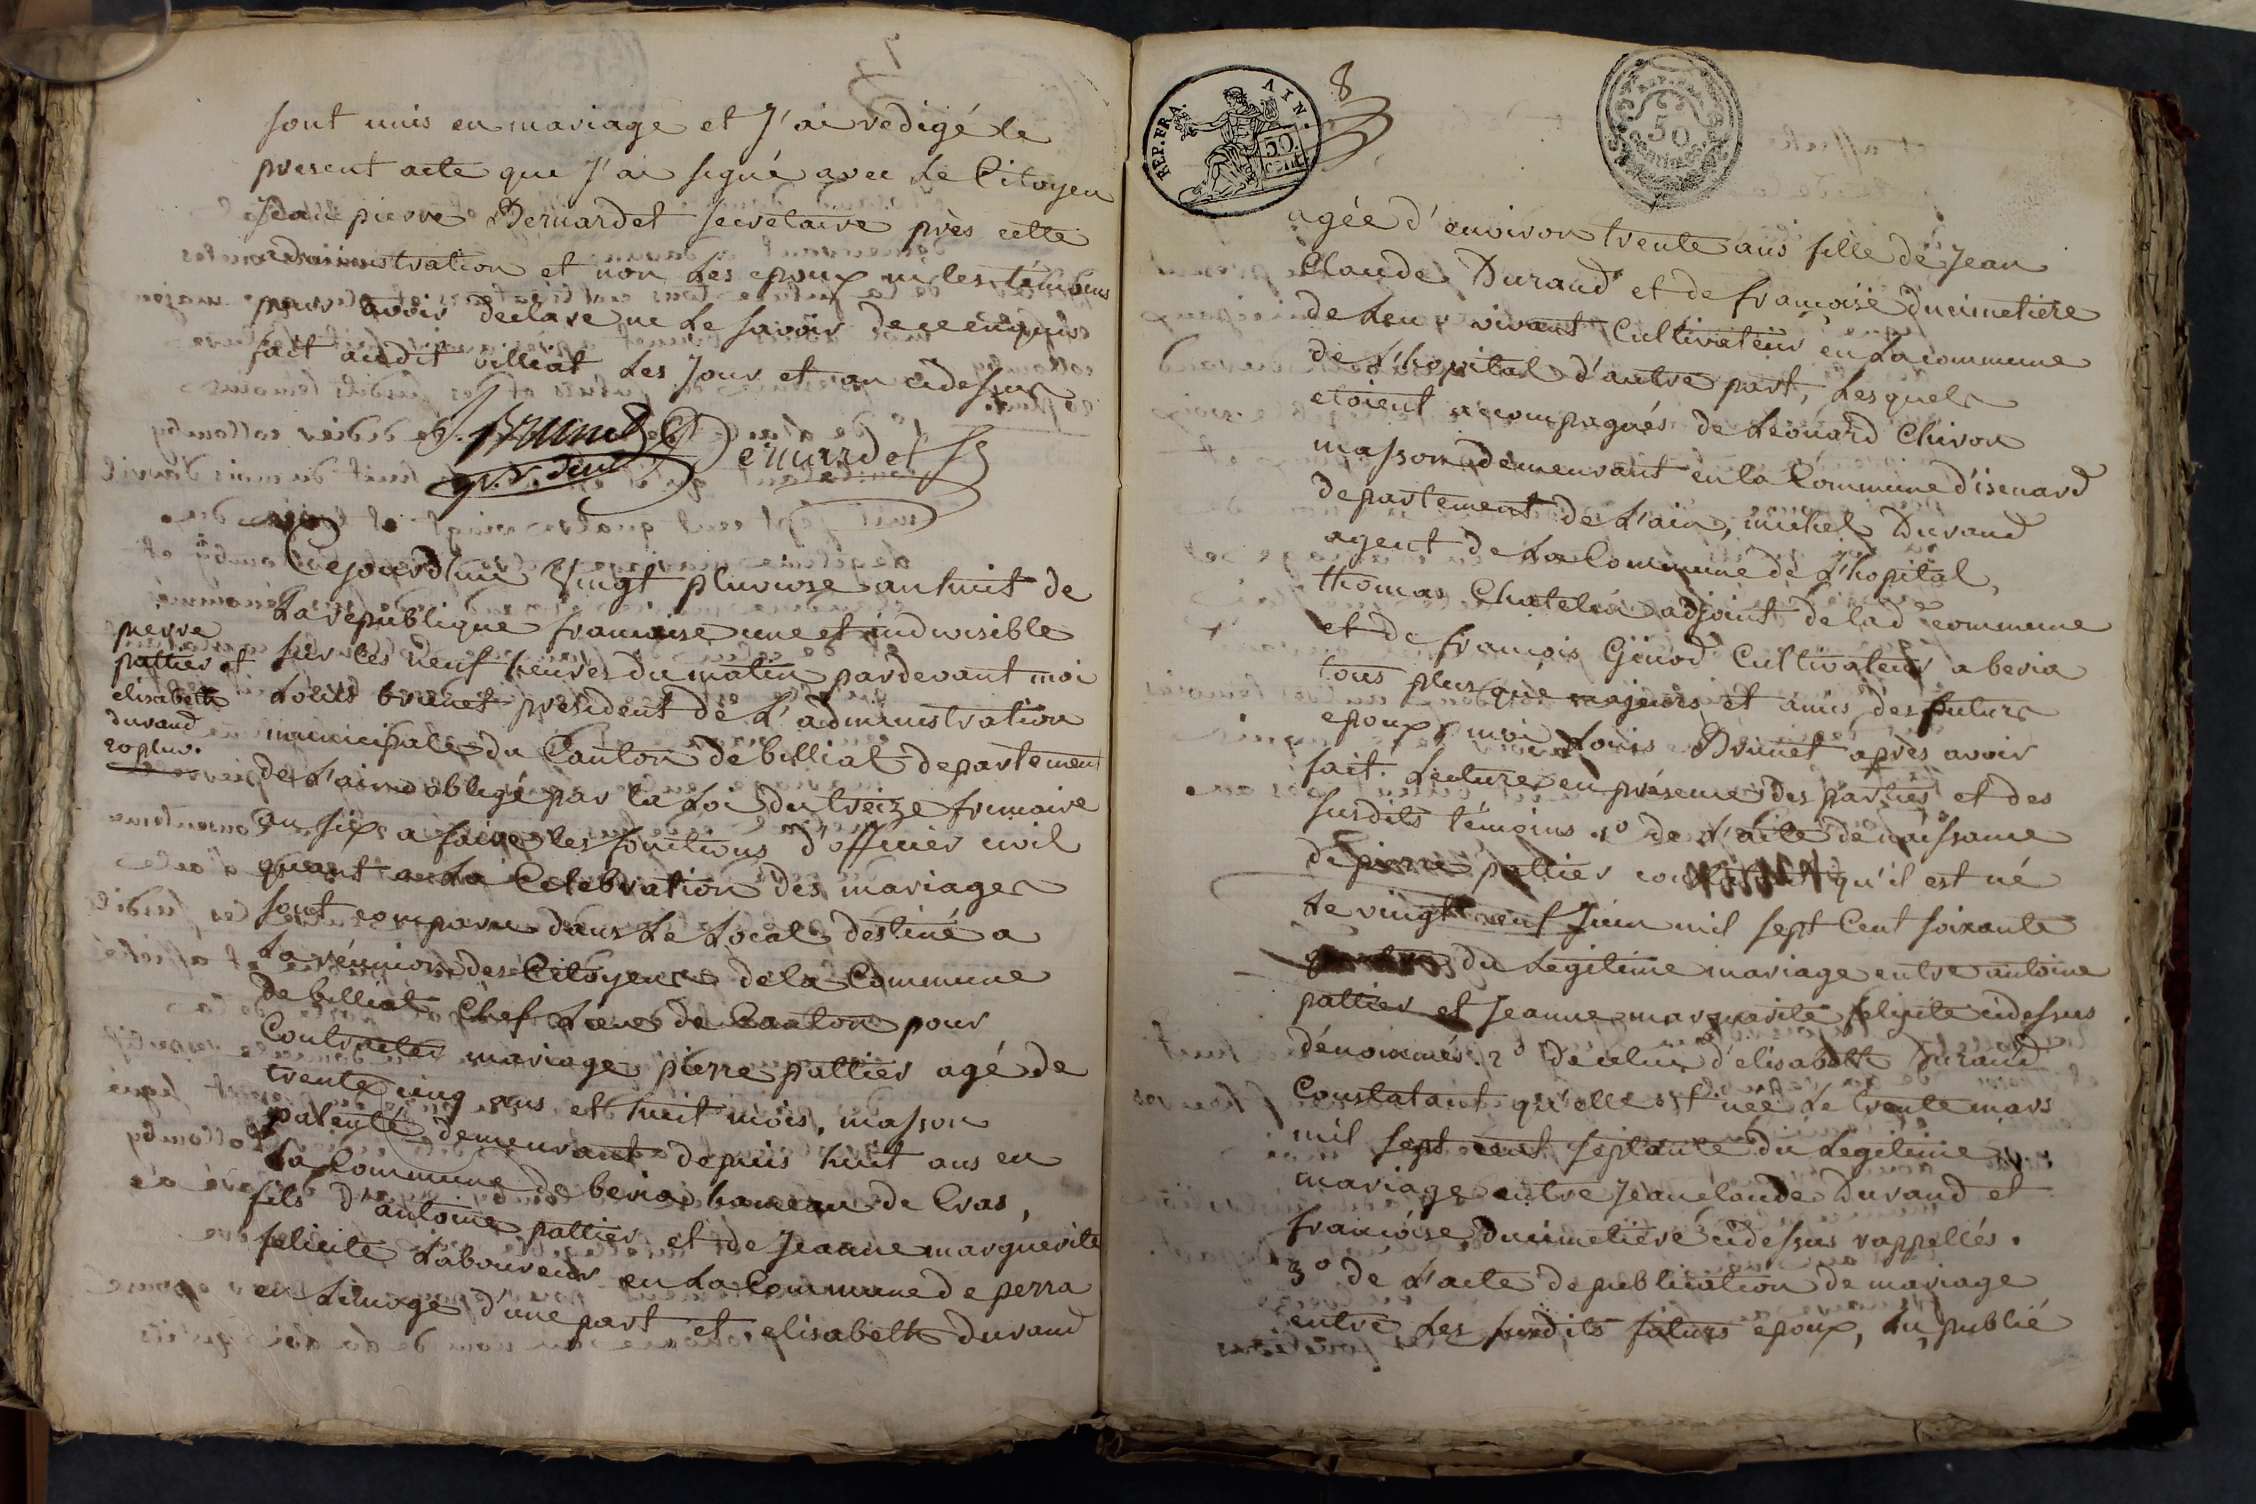 sont unis en mariage et J'ai redigé le
present acte que J'ai signé avec le Citoyen
Jean pierre Bernardet secretaire près cette
administration et non les epoux ni les témoins
pour avoir declaré ne le savoir de ce enquis
fait audit billiat les Jour et an cidessus
Brunet
Bernardet
Cejourd'hui Vingt pluviose an huit de
la republique francaise une et indivisible
sur les neuf heures du matin pardevant moi
Louis brunet president de L'administration
municipale du Canton de billiat departement
de L'ain obligé par la Loi du treize frimaire
an six a faire les fonctions d'officier civil
quant a La Celebration des mariages
sont comparu dans Le Local destiné a
La réunion des Citoyens de la Commune
de billiat Chef Lieu de Canton pour
Contracter mariage pierre pattier agé de
trente cinq ans et huit mois, masson
patenté demeurant depuis huit ans en
La Commune de beria hameau de Cras,
fils d'antoine pattier et de Jeanne marguerite
felicite Laboureur en La Commune de perra
en Limoge d'une part et elisabeth durand
pierre
pattier et
elisabeth
durand
20 pluv.
8
REP. FRA.
AIN.
50
CENT.
50
agée d'environ trente ans fille de Jean
Claude Durand et de francoise ducimetiere
de Leur vivant Cultivateur en La commune
de L'hopital d'autre part, Lesquels
etoient accompagnés de Léonard Chiron
masson demeurant en la Commune d'isenard
departement de L'ain, michel Durand
agent de La Commune de L'hopital,
thomas Chatelin adjoint de lad commune
et de francois Génod Cultivateur a beria
tous plus que majeurs et amis des futurs
epoux, moi Louis Brunet après avoir
fait Lecture en présence des parties et des
susdits témoins 1o de L'acte de naissance
de pierre pattier constatant qu'il est né
Le vingt neuf Juin mil sept Cent soixante
du Legitime mariage entre antoine
pattier et Jeanne marguerite felicite cidessus
dénommés. 2o de celui d'elisabeth Durand
Constatant qu'elle est née Le trente mars
mil sept cent septante du Legitime
mariage entre Jean claude Durand et
francoise ducimetiere cidessus rappellés.
3o de L'acte de publication de mariage
entre Les susdits futurs epoux, lu, publié